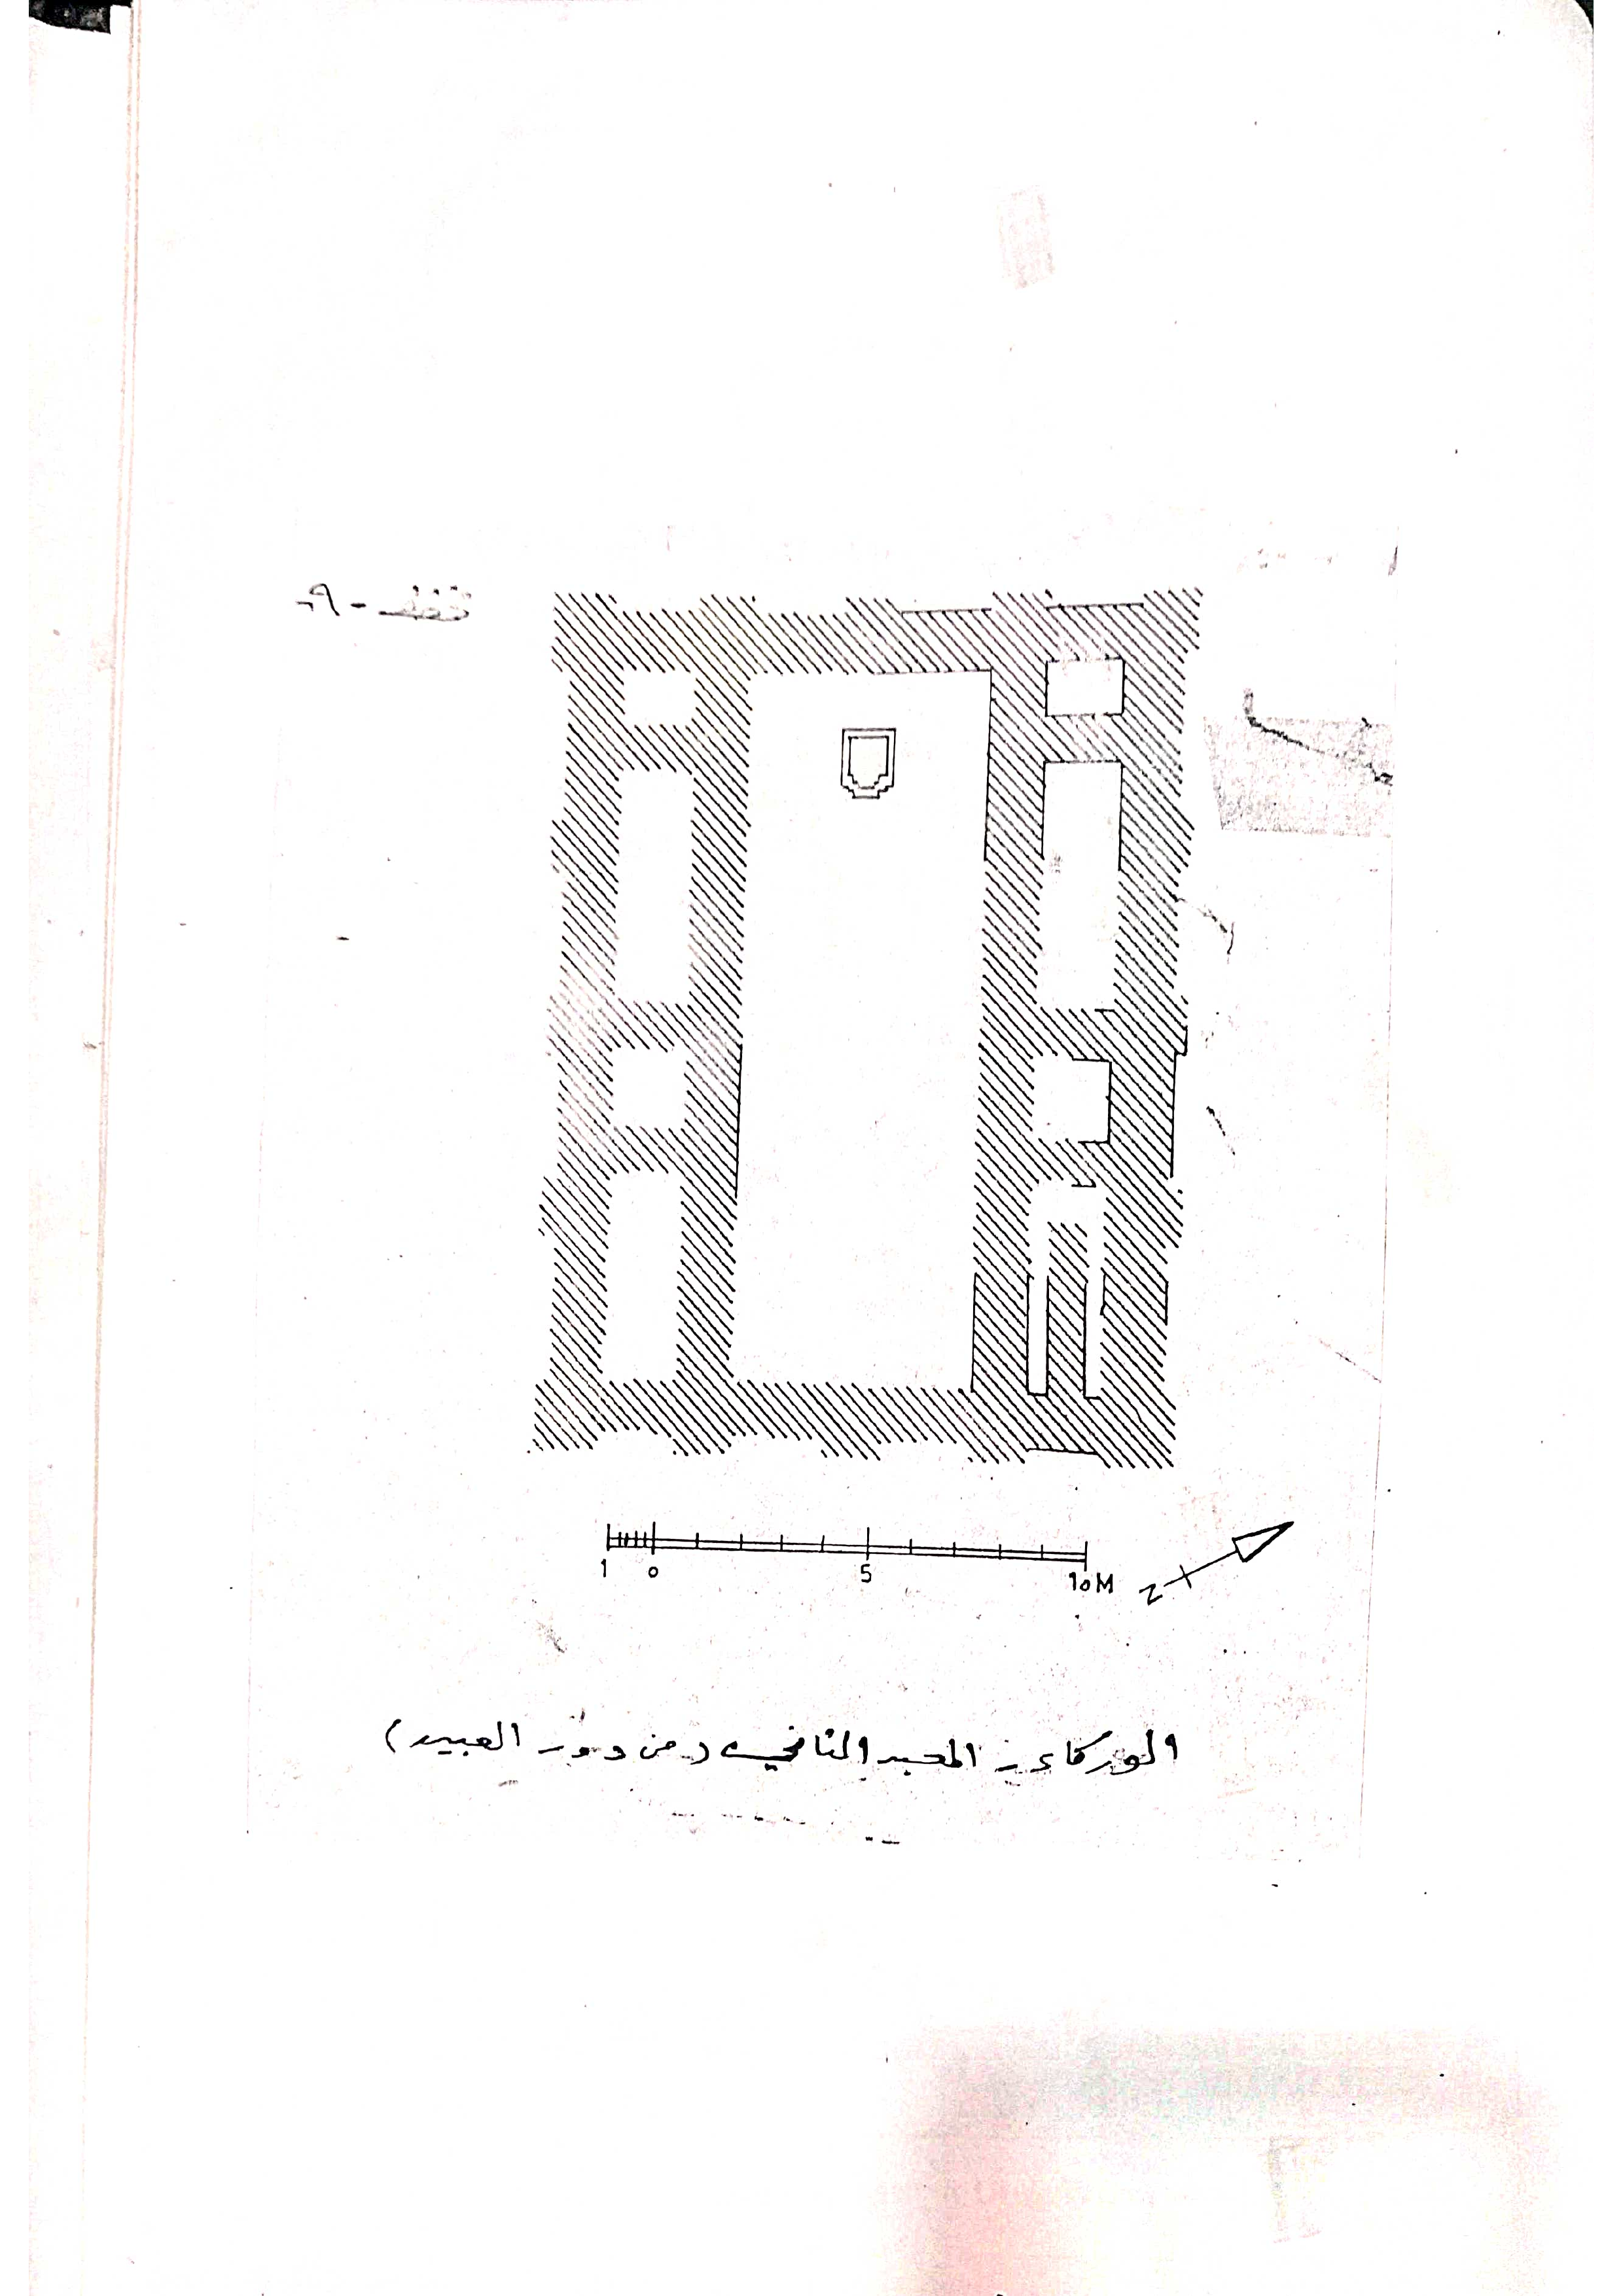 1 0 5 10M
N
الوركاء - المعبد الثاني (من دور العبيد)